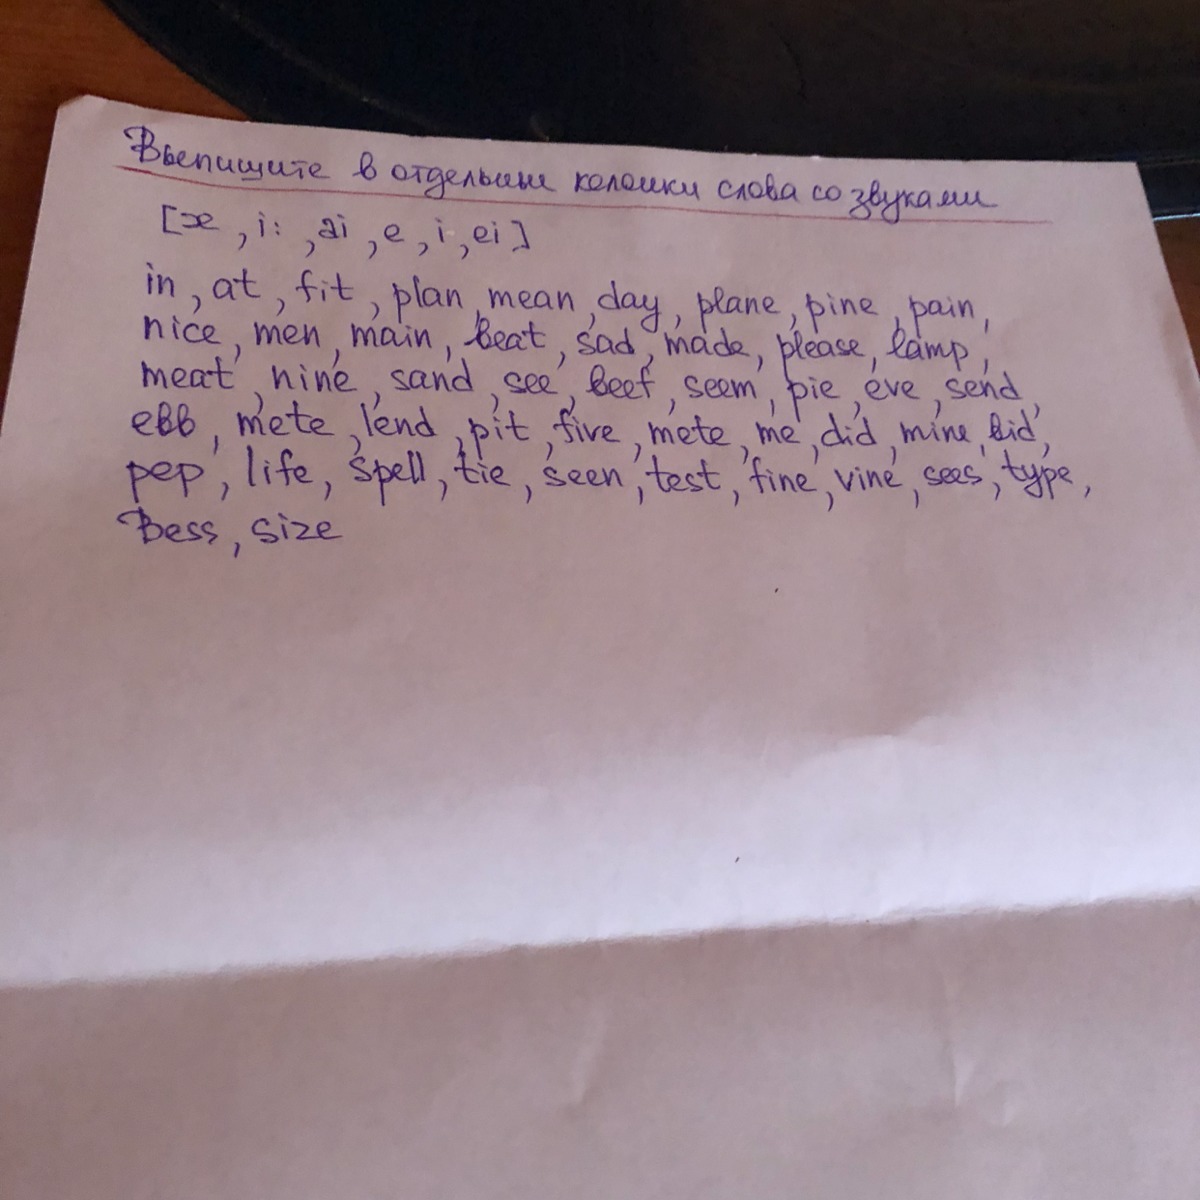 Выпишите в отдельные колонки слова со звуками
[æ, i:, ai, e, i, ei]
in, at, fit, plan, mean, day, plane, pine, pain,
nice, men, main, beat, sad, made, please, lamp,
meat, nine, sand, see, beef, seem, pie, eve, send,
ebb, mete, lend, pit, five, mete, me, did, mine, bid,
pep, life, spell, tie, seen, test, fine, vine, sees, type,
Bess, size